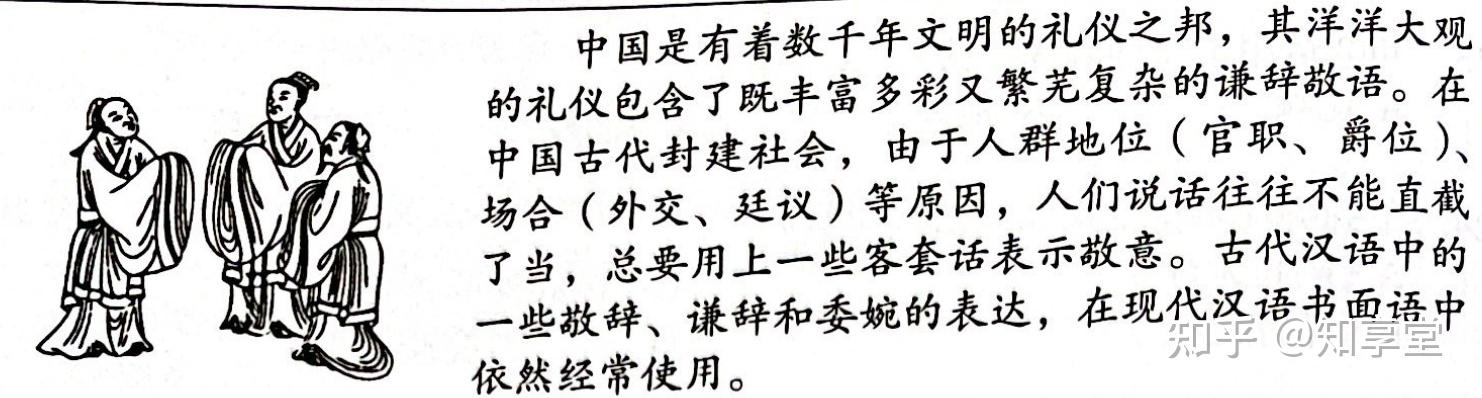 中国是有着数千年文明的礼仪之邦，其洋洋大观
的礼仪包含了既丰富多彩又繁芜复杂的谦辞敬语。在
中国古代封建社会，由于人群地位（官职、爵位）、
场合（外交、廷议）等原因，人们说话往往不能直截
了当，总要用上一些客套话表示敬意。古代汉语中的
一些敬辞、谦辞和委婉的表达，在现代汉语书面语中
依然经常使用。
知乎 @知享堂